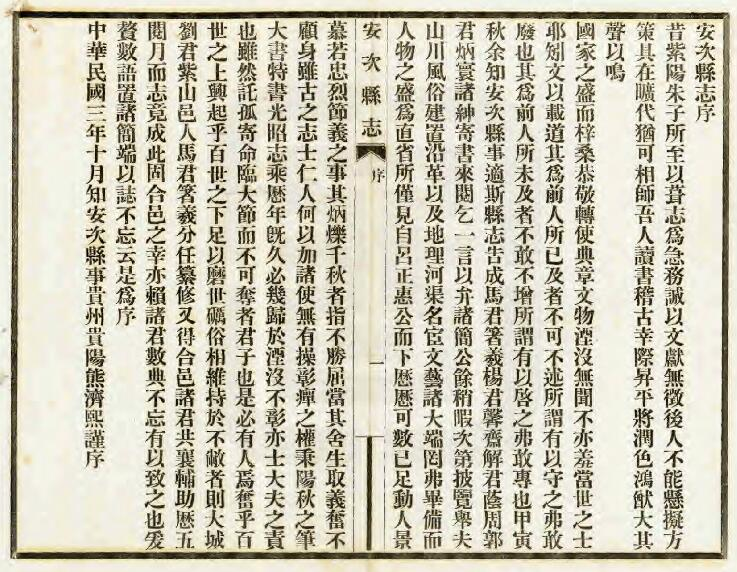 安次縣志序
昔紫陽朱子所至以葺志爲急務誠以文獻無徵後人不能懸擬方
策具在曠代猶可相師吾人讀書稽古幸際昇平將潤色鴻猷大其
聲以鳴
國家之盛而梓桑恭敬轉使典章文物湮沒無聞不亦羞當世之士
耶矧文以載道其爲前人所已及者不可不述所謂有以守之弗敢
廢也其爲前人所未及者不敢不增所謂有以啓之弗敢專也甲寅
秋余知安次縣事適斯縣志告成馬君箸羲楊君馨齋解君蔭周郭
君炳寰諸紳寄書來閱乞一言以弁諸簡公餘稍暇次第披覽舉夫
山川風俗建置沿革以及地理河渠名宦文藝諸大端罔弗畢備而
人物之盛爲直省所僅見自呂正惠公而下歷歷可數已足動人景
安次縣志
序
一
慕若忠烈節義之事其炳爍千秋者指不勝屈當其舍生取義奮不
顧身雖古之志士仁人何以加諸使無有操彰癉之權秉陽秋之筆
大書特書光昭志乘歷年旣久必幾歸於湮沒不彰亦士大夫之責
也雖然託孤寄命臨大節而不可奪者君子也是必有人焉奮乎百
世之上興起乎百世之下足以磨世礪俗相維持於不敝者則大城
劉君紫山邑人馬君箸羲分任纂修又得合邑諸君共襄輔助歷五
閱月而志竟成此固合邑之幸亦賴諸君數典不忘有以致之也爰
贅數語置諸簡端以誌不忘云是爲序
中華民國三年十月知安次縣事貴州貴陽熊濟熙謹序